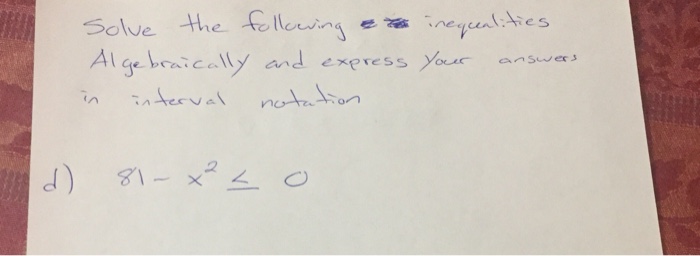 Solve the following inequalities
Algebraically and express your answers
in interval notation
d) 81 - x² ≤ 0